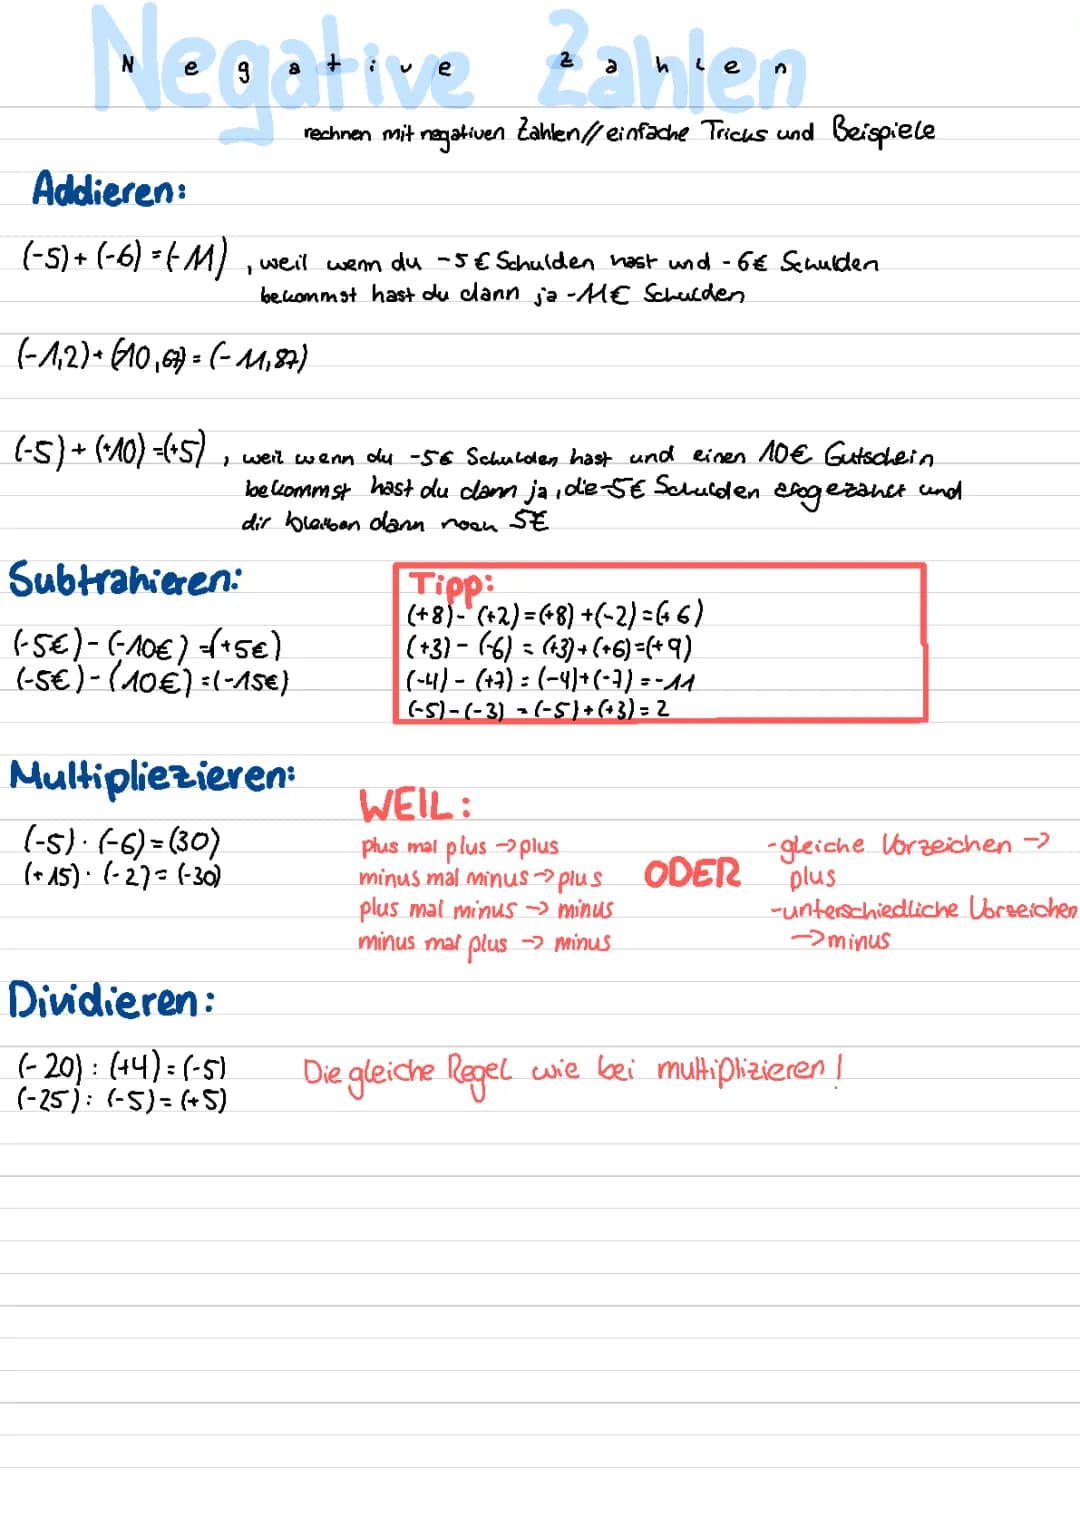 Negative Zahlen
Negative Zahlen
rechnen mit negativen Zahlen//einfache Tricks und Beispiele
Addieren:
(-5)+(-6)=(-11), weil wenn du -5€ Schulden hast und -6€ Schulden
bekommst hast du dann ja -11€ Schulden
(-1,2)+(-10,67)=(-11,87)
(-5)+(+10)=(+5), weil wenn du -5€ Schulden hast und einen 10€ Gutschein
bekommst hast du dann ja, die -5€ Schulden abgezahlt und
dir bleiben dann noch 5€
Subtrahieren:
(-5€)-(-10€)=(+5€)
(-5€)-(10€)=(-15€)
Tipp:
(+8)-(+2)=(+8)+(-2)=(+6)
(+3)-(-6)=(+3)+(+6)=(+9)
(-4)-(+7)=(-4)+(-7)=-11
(-5)-(-3)=(-5)+(+3)=2
Multipliezieren:
(-5)·(-6)=(30)
(+15)·(-2)=(-30)
WEIL:
plus mal plus → plus
minus mal minus → plus
plus mal minus → minus
minus mal plus → minus
ODER
-gleiche Vorzeichen →
plus
-unterschiedliche Vorzeichen
→ minus
Dividieren:
(-20):(+4)=(-5)
(-25):(-5)=(+5)
Die gleiche Regel wie bei multiplizieren!